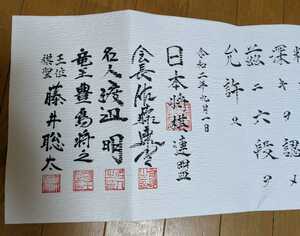 深キヲ認
茲ニ六段ヲ
允許ス
令和二年九月一日
日本将棋連盟
会長佐藤康光
名人渡辺明
竜王豊島将之
王位
棋聖
藤井聡太